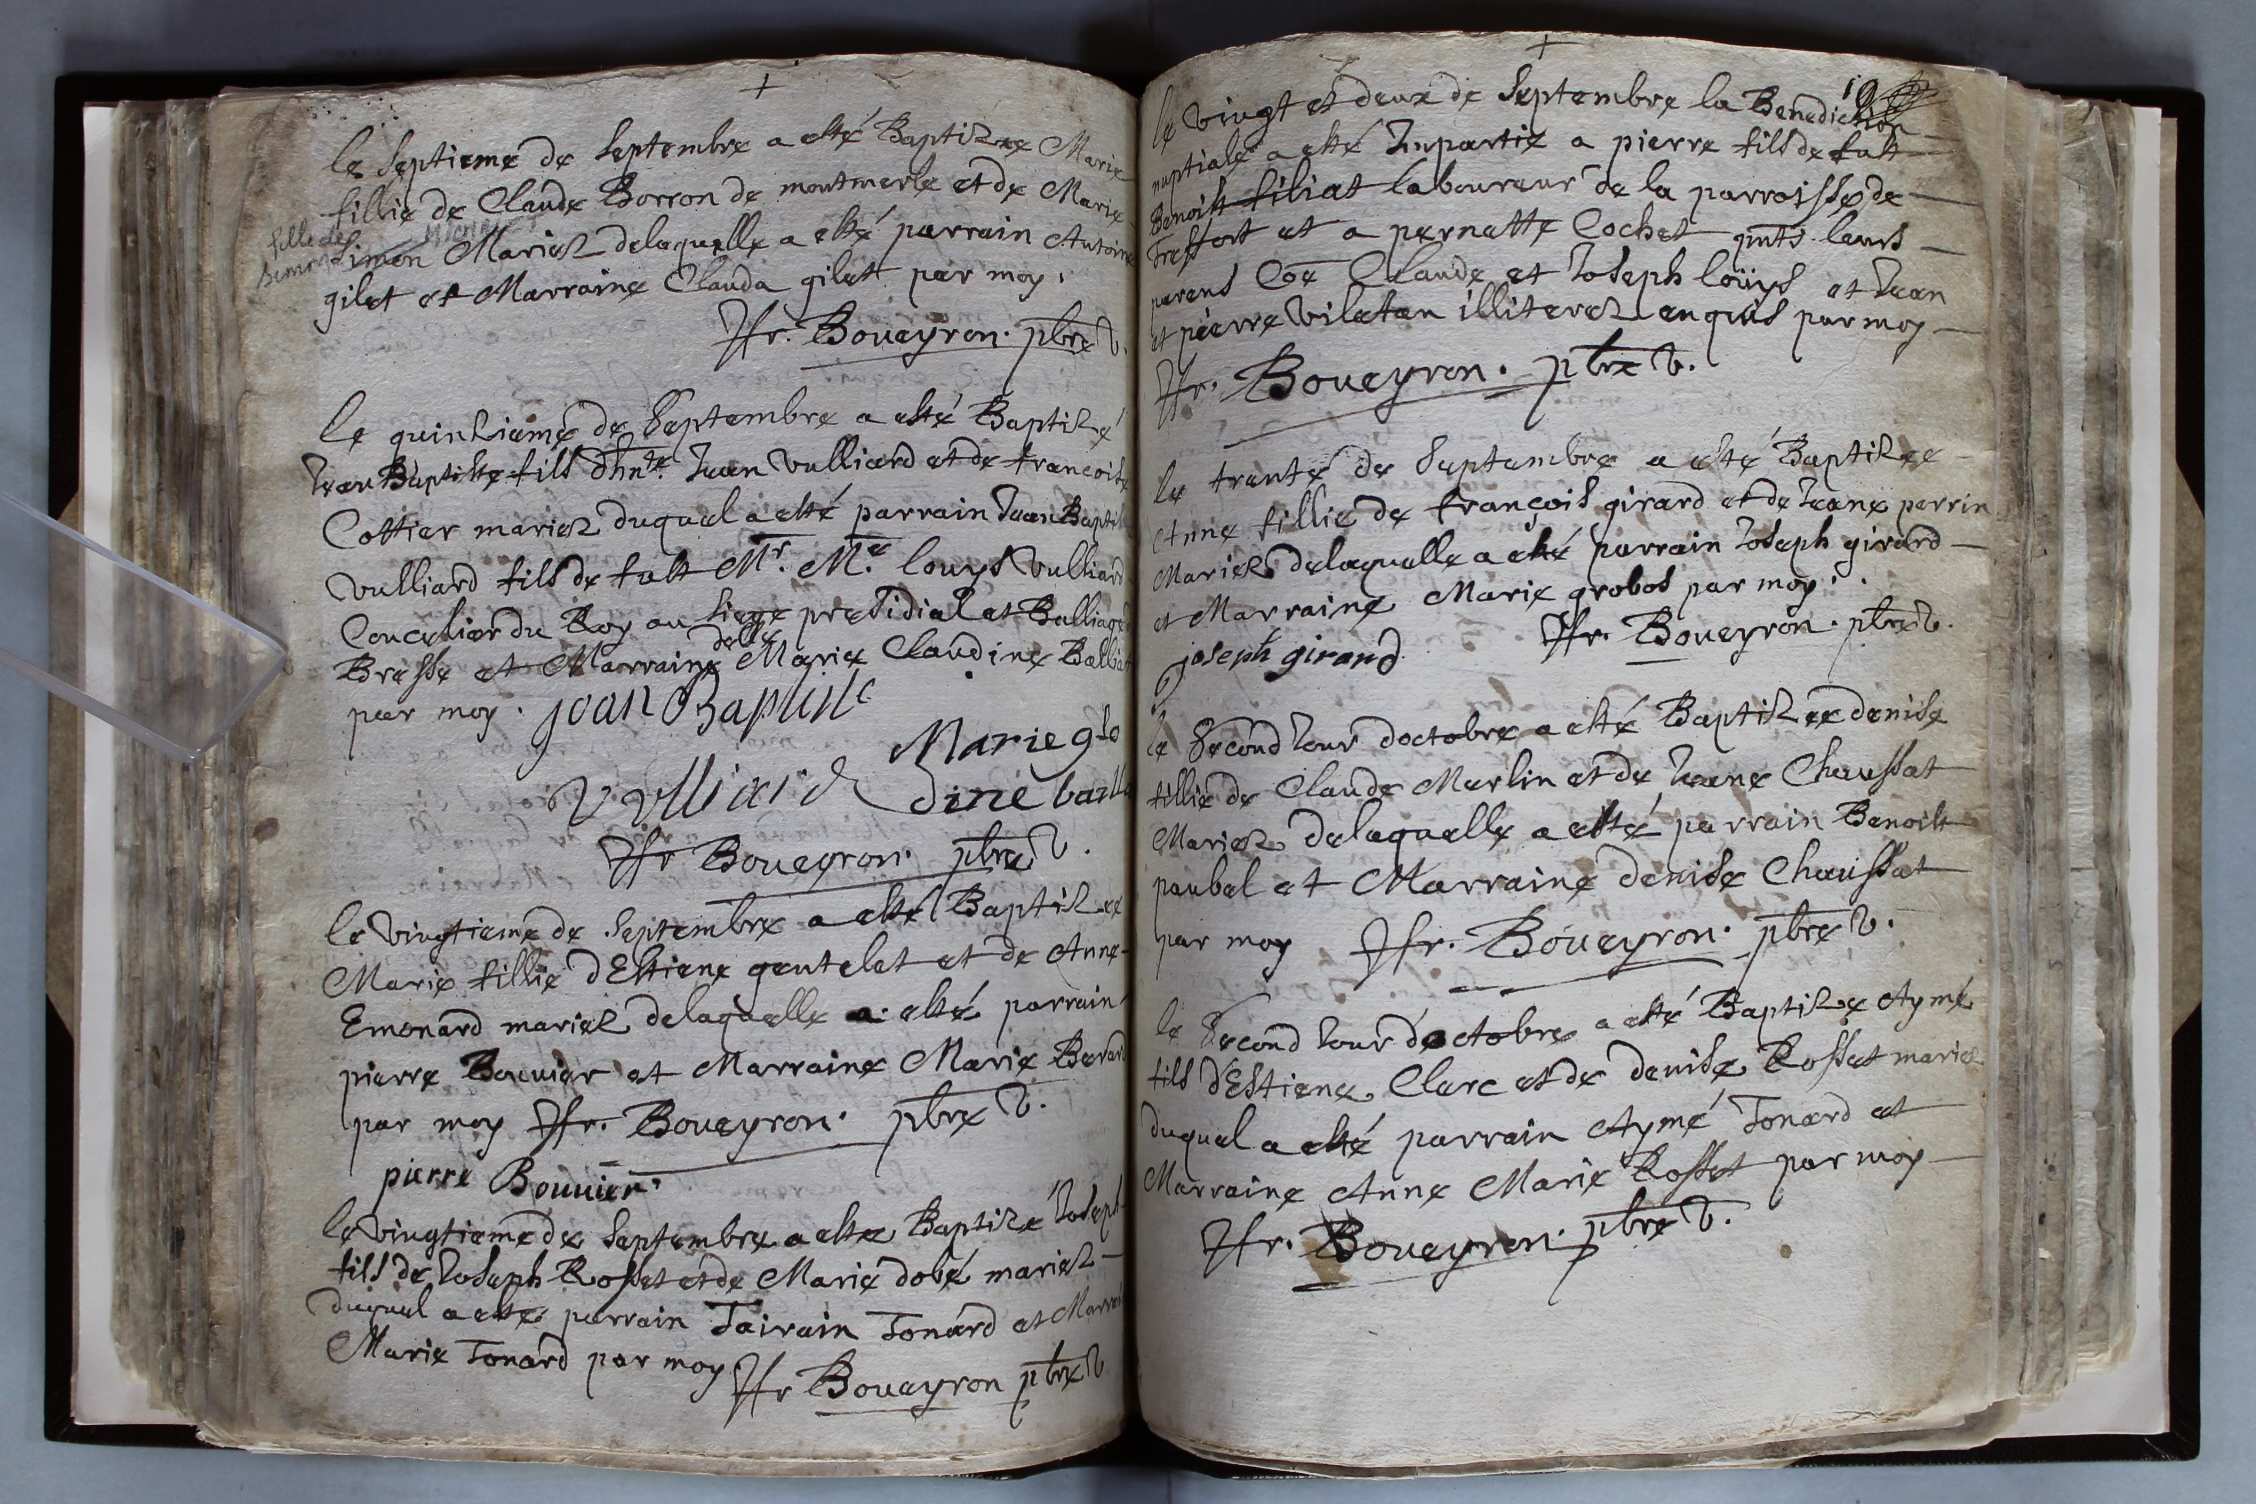 +
le septieme de septembre a esté Baptizée Marie
fillie de Claude Borron de montmerle et de Marie
Simon Mariez delaquelle a esté parrain Antoine
gilet et Marraine Clauda gilet par moy.
Hr. Boueyron. pbre V.
le quinzieme de Septembre a esté Baptizé
Jean Baptiste fils d'hnte. Jean Vulliard et de francoise
Cottier mariez duquel a esté parrain Jean Baptiste
Vulliard fils de fult Mr. Me. louys Vulliard
Conceliar du Roy au siege presidial et Balliage
Bresse et Marraine delle Marie Claudine Ballia
par moy. jean Baptiste
Vulliard
Marie glo
dine baill
Hr Boueyron. pbre V.
le vingtieme de septembre a esté Baptizée
Marie fillie d'Estiene gentelet et de Anne
Emonard mariez delaquelle a esté parrain
pierre Bouvier et Marraine Marie Berard
par moy Hr. Boueyron. pbre V.
pierre Bouuier.
le vingtieme de septembre a esté Baptizé Joseph
fils de Joseph Rosset et de Marie dobé mariez
duquel a esté parrain Tairain Tonard et Marrai
Marie Tonard par moy
Hr Boueyron pbre V
+
le vingt et deux de septembre la Benediction
nuptiale a esté Impartie a pierre fils de fult
Benoist filiat laboureur de la parroisse de
Treffort et a pernette Cochet pnts leurs
parens Coe Claude et Joseph loüys et Jean
et pierre Vileten illiterez enquis par moy
Hr. Boueyron. pbre V.
le trente de Septembre a esté Baptizee
Anne fillie de françois girard et de Jeane perrin
Mariez delaquelle a esté parrain Joseph girard
et Marraine Marie grobos par moy.
Hr. Boueyron. pbre V.
joseph girard
le Second Jour doctobre a esté Baptizée denise
fillie de Claude Marlin et de Jeane Chaussat
Mariez delaquelle a esté parrain Benoist
paubel et Marraine denise Chaussat
par moy Hr. Boueyron. pbre V.
le Second Jour d'octobre a esté Baptize Aymé
fils d'Estiene Clerc et de denise Rosset mariez
duquel a esté parrain Aymé Tonard et
Marraine Anne Marie Rosset par moy
Hr. Boueyron. pbre V.